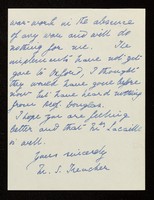 over-work in the absence
of any news and will do
nothing for me. The
implements have not yet
gone to Oxford, I thought
they would have gone before
now but have heard nothing
from Prof. Douglas.
I hope you are feeling
better and that Mrs Lacaille
is well.
Yours sincerely
M. S. Trencher